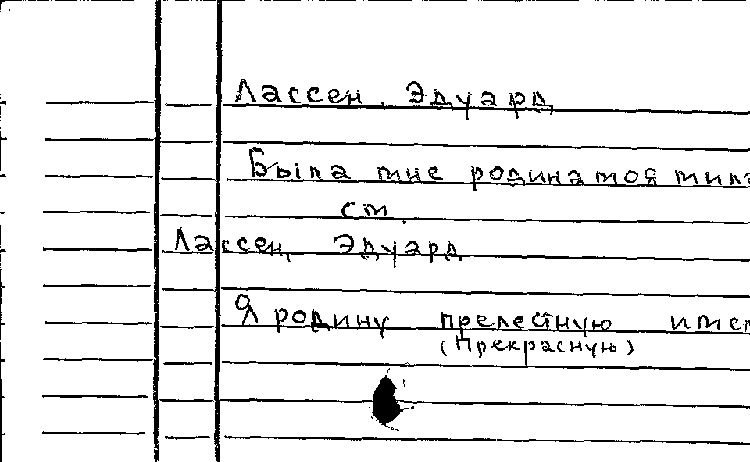 Лассен, Эдуард
Была мне родина моя мила
ст.
Лассен, Эдуард
Я родину прелестную имел
(Прекрасную)